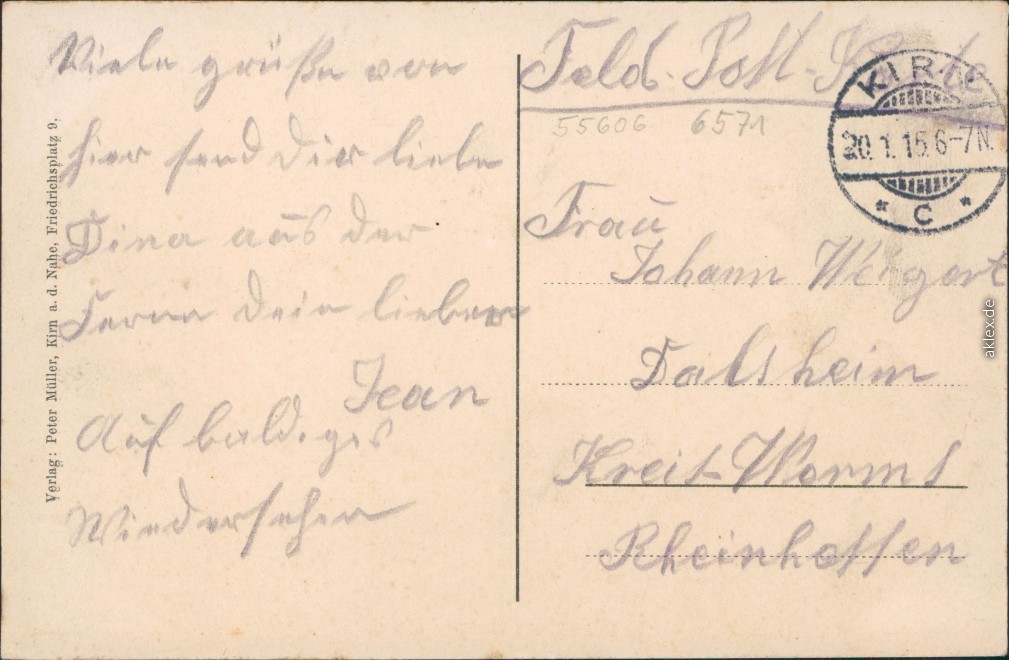 Viele grüße von
hier send Dir liebe
Dina aus der
Ferne dein lieber
Jean
Auf baldiges
Wiedersehen
Verlag: Peter Müller, Kirn a. d. Nahe, Friedrichsplatz 9.
Feld-Post-Karte
55606 6571
KIRN
20.1.15.6-7N.
* C *
Frau
Johann Weigert
Dalsheim
Kreis-Worms
Rheinhessen
aklex.de